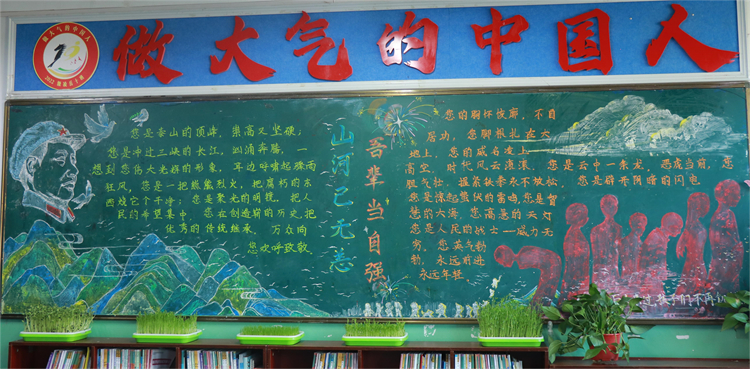 做大气的中国人
做大气的中国人
您是泰山的顶峰，崇高又坚硬；
您是冲过三峡的长江，汹涌奔腾，一
想到您伟大光辉的形象，耳边呼啸起骤雨
狂风，您是一把熊熊烈火，把腐朽的东
西烧它个干净；您是聚光的明镜，把人
民的希望集中，您在创造崭的历史，把
优秀的传统继承，万众向
您欢呼致敬
山河已无恙
吾辈当自强
您的胸怀恢廓，不自
居功，您脚根扎在大
地上，您的威名凌上
高空，时代风云滚滚，您是云中一条龙，
胆气壮，握着铁拳永不放松，您是辟开阴暗的闪电
您是惊起蛰伏的雷鸣，您是智
慧的大海，您高悬的天灯
您是人民的战士—威力无
穷，您英气勃
勃，永远前进
永远年轻
让孩子们不再